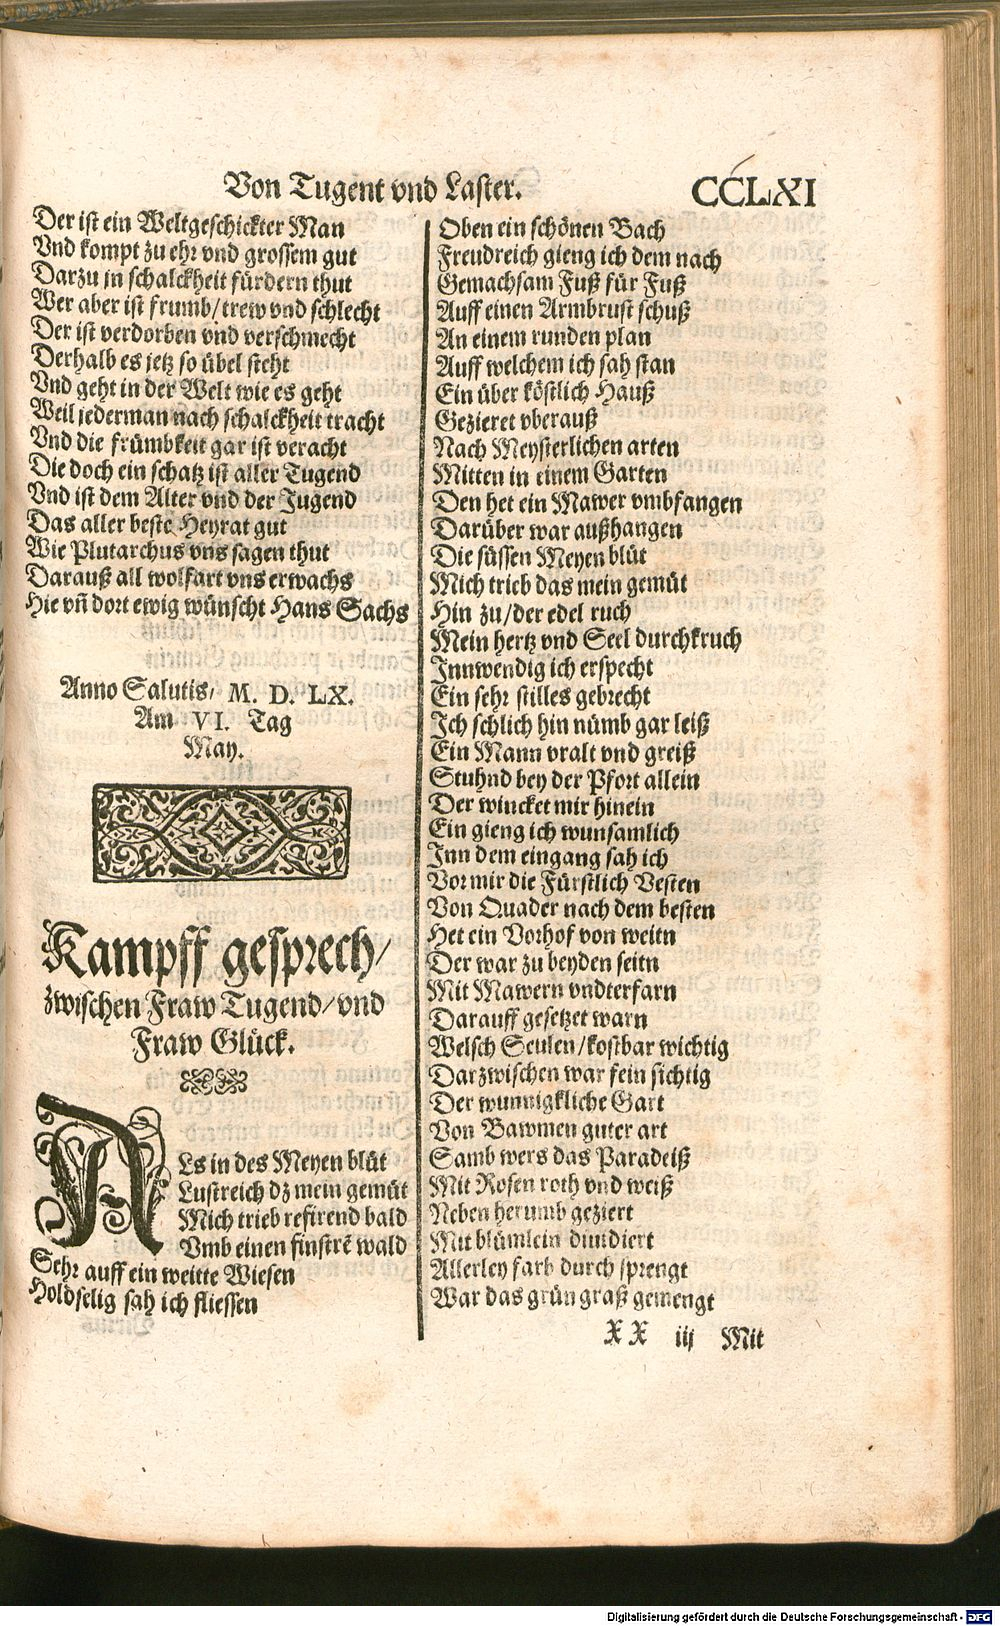 Von Tugent vnd Laster. CCLXI
Der ist ein Weltgeschickter Man
Vnd kompt zu ehr vnd grossem gut
Darzu jn schalckheit fürdern thut
Wer aber ist frumb/ trew vnd schlecht
Der ist verdorben vnd verschmecht
Derhalb es jetz so übel steht
Vnd geht in der Welt wie es geht
Weil jederman nach schalckheit tracht
Vnd die frümbkeit gar ist veracht
Die doch ein schatz ist aller Tugend
Vnd ist dem Alter vnd der Jugend
Das aller beste Heyrat gut
Wie Plutarchus vns sagen thut
Darauß all wolfart vns erwachs
Hie vn̄ dort ewig wünscht Hans Sachs
Anno Salutis, M. D. LX.
Am VI. Tag
May.
Kampff gesprech/
zwischen Fraw Tugend/ vnd
Fraw Glück.
ALs in des Meyen blüt
Lustreich dz mein gemüt
Mich trieb refirend bald
Vmb einen finstrē wald
Sehr auff ein weitte Wiesen
Holdselig sah ich fliessen
Oben ein schönen Bach
Freudreich gieng ich dem nach
Gemachsam Fuß für Fuß
Auff einen Armbrust schuß
An einem runden plan
Auff welchem ich sah stan
Ein über köstlich Hauß
Gezieret vberauß
Nach Meysterlichen arten
Mitten in einem Garten
Den het ein Mawer vmbfangen
Darüber war außhangen
Die süssen Meyen blüt
Mich trieb das mein gemüt
Hin zu/ der edel ruch
Mein hertz vnd Seel durchkruch
Innwendig ich erspecht
Ein sehr stilles gebrecht
Ich schlich hin nümb gar leiß
Ein Mann vralt vnd greiß
Stuhnd bey der Pfort allein
Der wincket mir hinein
Ein gieng ich wunsamlich
Inn dem eingang sah ich
Vor mir die Fürstlich Vesten
Von Quader nach dem besten
Het ein Vorhof von weitn
Der war zu beyden seitn
Mit Mawern vndterfarn
Darauff gesetzet warn
Welsch Seulen/ kostbar wichtig
Darzwischen war fein sichtig
Der wunnigkliche Gart
Von Bawmen guter art
Samb wers das Paradeiß
Mit Rosen roth vnd weiß
Neben herumb geziert
Mit blümlein diuidiert
Allerley farb durch sprengt
War das grün graß gemengt
XX iij Mit
Digitalisierung gefördert durch die Deutsche Forschungsgemeinschaft - DFG